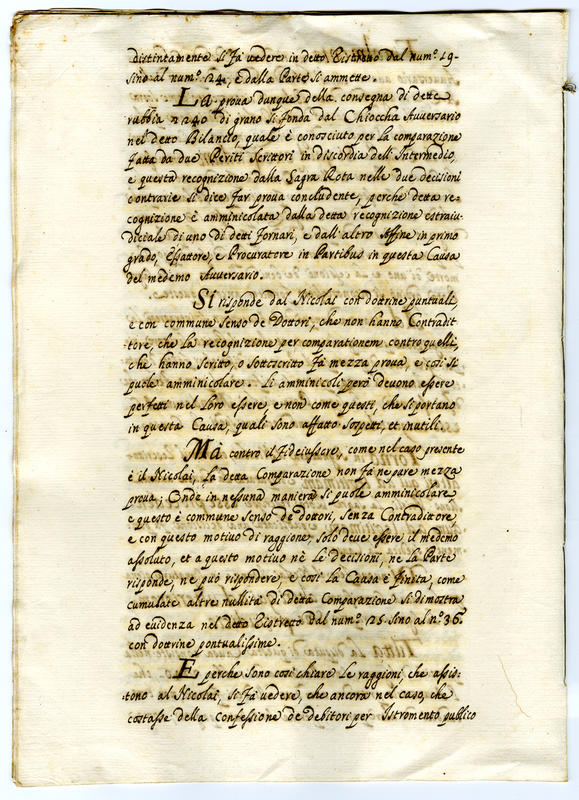 distintamente si fà vedere in detto Ristretto dal num.º 19.
sino al num.º 24, e dalla Parte si ammette.
La prova dunque della consegna di dette
rubbia n 240 di grano si fonda dal Chioccha Avversario
nel detto Bilancio, quale è conosciuto per la comparazione
fatta da due Periti Scrittori in discordia dell'Intermedio,
e questa recognizione dalla Sagra Rota nelle due decisioni
contrarie si dice far prova concludente, perche detta re-
cognizione è amminicolata dalla detta recognizione estraiu-
diciale di uno di detti fornari, e dall'altro Affine in primo
grado, Essattore, e Procuratore in Partibus in questa Causa
del medemo Avversario.
Si risponde dal Nicolai con dottrine puntuali,
e con commune senso de Dottori, che non hanno Contradit-
tore, che la recognizione per comparationem contro quelli,
che hanno scritto, o sottoscritto fà mezza prova, e così si
puole amminicolare. Li amminicoli però devono essere
perfetti nel loro essere, e non come questi, che si portano
in questa Causa, quali sono affatto sospetti, et inutili.
Mà contro il Fideiussore, come nel caso presente
è il Nicolai, la detta Comparazione non fà ne pure mezza
prova; Onde in nessuna maniera si puole amminicolare,
e questo è commune senso de dottori, senza Contradittore,
e con questo motivo di raggione, solo deve essere il medemo
assoluto, et a questo motivo nè le decisioni, ne la Parte
risponde, ne può rispondere, e così la Causa è finita, come
cumulate altre nullità di detta Comparazione si dimostra
ad evidenza nel detto Ristretto dal num.º 25. sino al n.º 36.
con dottrine pontualissime.
E perche sono così chiare le raggioni, che assis-
tono al Nicolai, si fà vedere, che ancora nel caso, che
costasse della Confessione de debitori per Istromento publico